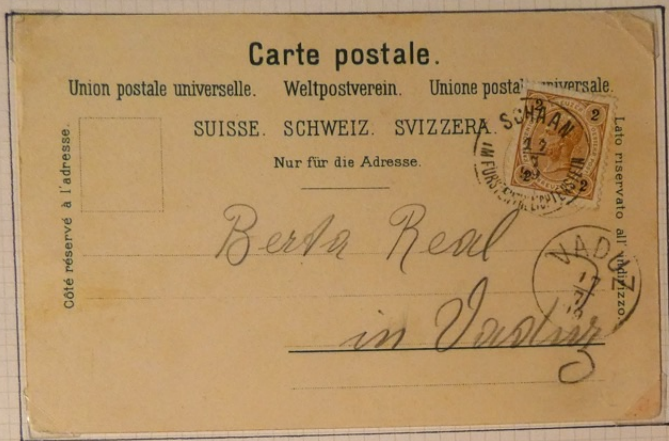 Carte postale.
Union postale universelle. Weltpostverein. Unione postale universale.
SUISSE. SCHWEIZ. SVIZZERA.
Nur für die Adresse.
Côté réservé à l'adresse.
Lato riservato all' indirizzo.
2 2
2 2
SCHAAN
17
7
IM FÜRSTENTH. LIECHTENSTEIN
Berta Real
VADUZ
17
7
in Vaduz